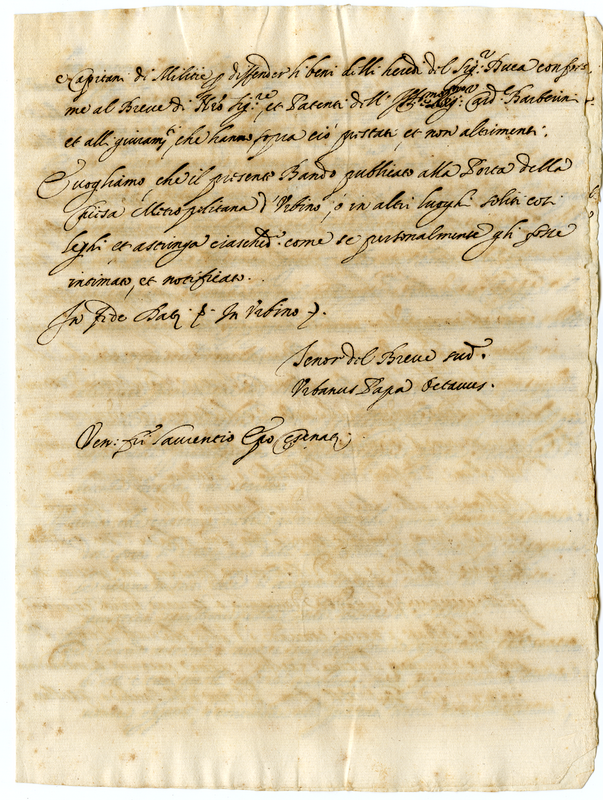 e Capitani di Militie p diffender li beni delli heredi del Sig.r Duca confor-
me al Breve di Nro Sig.re, et Patenti dell' Sig. Card. Barberin
et alli giuram.ti, che hanno sopra ciò prestati, et non altrimenti.
E vogliamo, che il presente Bando publicato alla Porta della
Chiesa Metropolitana d'Urbino, o in altri luoghi soliti cosi
leghi et astringa ciasched.o come se personalmente gli fosse
intimato, et notificato.
In fide Dat. In Urbino
Tenor del Breve sud.o
Urbanus Papa Octavus.
Ven. fr. Laurentio Epo Cesenat.